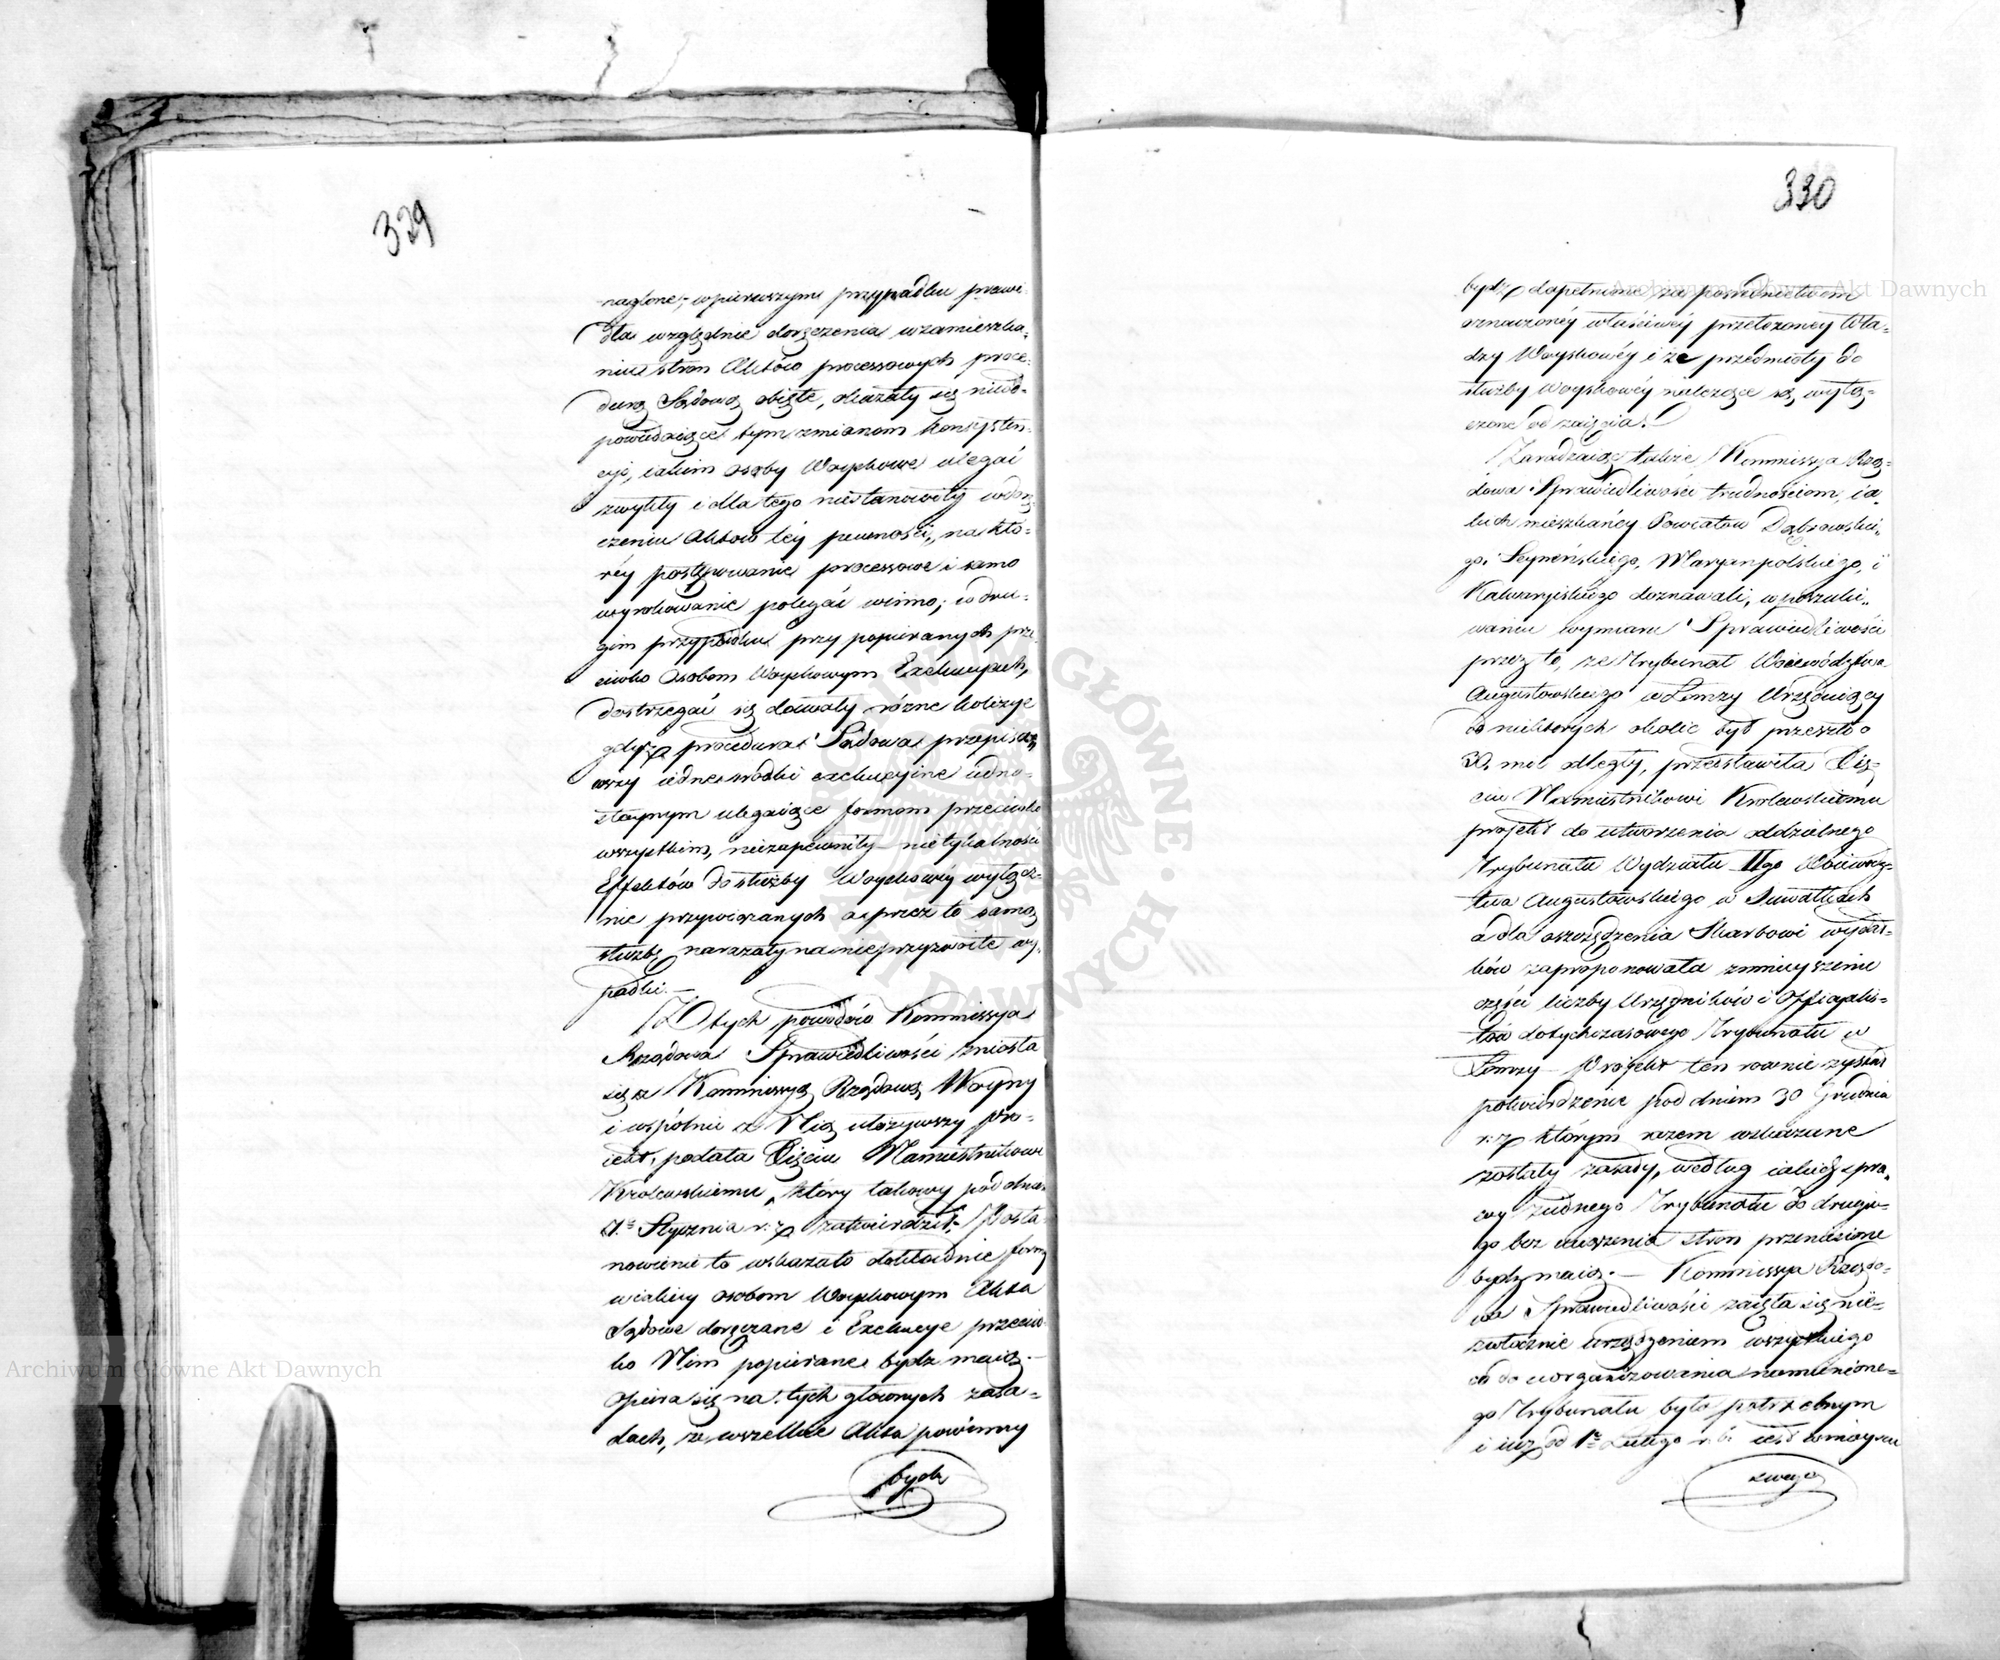 329
naglone; w pierwszym przypadku prawi-
dła względnie doręczenia w zamieszka-
niu stron Aktów processowych proce-
durą Sądową objęte, okazały się nieod-
powiedaiące tym zmianom konsysten-
cyi, iakim osoby Woyskowe ulegać
zwykły i dla tego niestanowiły w dorę-
czeniu Aktów téy pewności, na któ-
réy postępowanie processowe i samo
wyrokowanie polegać winno; w dru-
gim przypadku przy popieranych prze-
ciwko Osobom Woyskowym Exekucyach,
dostrzegać się dawały różne kolizye
gdyż procedura Sądowa przepisaw-
szy iedne środki exekucyine iedno-
staynym ulegaiące formom przeciwko
wszystkim, niezapewniły nietykalności
Effektów do służby Woyskowéy wyłącz-
nie przywiązanych a przez to samą
służbę narażały na nieprzyzwoite wy-
padki.—
Z tych powodów Kommissya
Rządowa Sprawiedliwości zniosła
się z Kommissyą Rządową Woyny
i wspólnie z Nią ułożywszy pro-
iekt, podała Xięciu Namiestnikowi
Królewskiemu, który takowy pod dniem
Stycznia r: z zatwierdził.— Posta-
nowienie to wskazało dokładnie formę
w iakiey osobom Woyskowym Akta
Sądowe doręczane i Exekucye przeciw-
ko Nim popierane bydź maią.—
Opiera się na tych głównych zasa-
dach, że wszelkie Akta powinny
bydź
330
bydź dopełnione za pośrednictwem
oznaczonéy właściwéy przełożoney Wła-
dzy Woyskowéy i że przedmioty do
służby Woyskowéy należące są wyłą-
czone od zaięcia.
Zaradzaiąc także Kommissya Rzą-
dowa Sprawiedliwości trudnościom, ia-
kich mieszkańcy Powiatów Dąbrowskie-
go, Seyneńskiego, Maryampolskiego, i
Kalwaryiskiego doznawali, w poszuki-
waniu wymiaru Sprawiedliwości
przez to, że Trybunał Woiewództwa
Augustowskiego w Łomży Urzęduiący
od niektórych okolic był przeszło
30. mil odległy, przedstawiła Xię-
ciu Namiestnikowi Królewskiemu
projekt do utworzenia oddzielnego
Trybunału Wydziału IIgo Woiewódz-
twa Augustowskiego w Suwałkach
a dla oszczędzenia Skarbowi wydat-
ków zaproponowała zmnieyszenie
części liczby Urzędników i Officjalis-
tów dotychczasowego Trybunału w
Łomży — Projekt ten równie zyskał
potwierdzenie pod dniem 30 Grudnia
r: z którym razem wskazane
zostały zasady, według iakich spra-
wy z iednego Trybunału do drugie-
go bez stron przeniesione
bydź maią.— Kommissya Rządo-
wa Sprawiedliwości zaięła się nie-
zwłocznie urządzeniem wszystkiego
co do uorganizowania namienione-
go Trybunału było potrzebnym
i iuż od 1º Lutego r: b: iest w mieyscu
swego
Archiwum Główne Akt Dawnych
Archiwum Główne Akt Dawnych
ARCHIWUM GŁÓWNE · AKT DAWNYCH ·